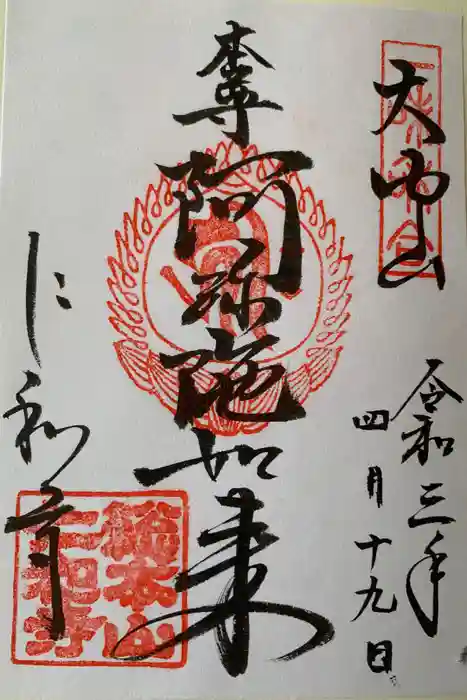 大内山
令和三年
四月十九日
本尊
阿弥陀如来
仁和寺
総本山
仁和寺